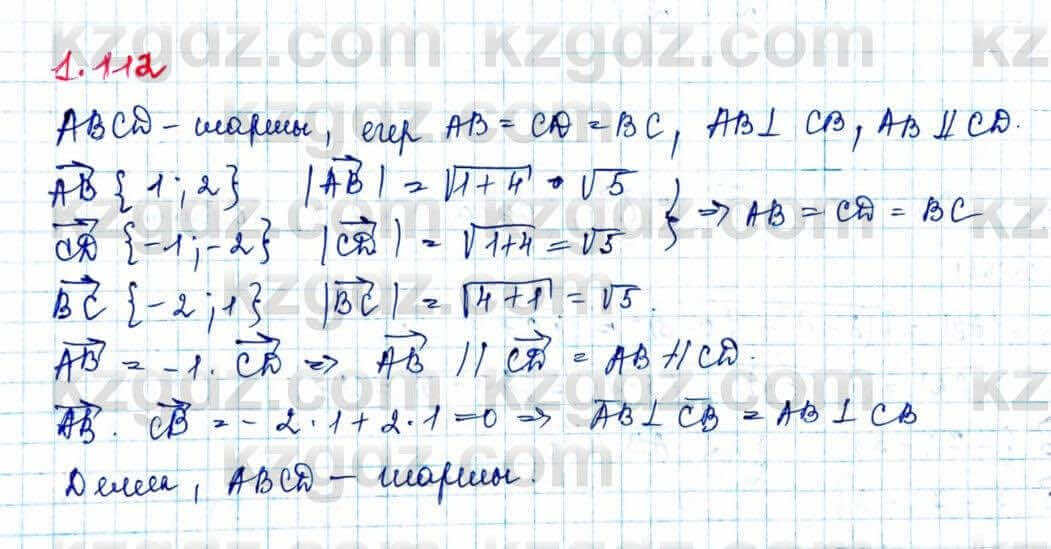 kzgdz.com
1.112
ABCD – шаршы, егер AB = CD = BC, AB ⊥ CB, AB || CD.
AB {1; 2} |AB| = √1+4 = √5
CD {-1; -2} |CD| = √1+4 = √5 } ⇒ AB = CD = BC
BC {-2; 1} |BC| = √4+1 = √5.
AB = -1 · CD ⇒ AB // CD = AB // CD.
AB · CB = -2·1+2·1=0 ⇒ AB ⊥ CB = AB ⊥ CB
Демек, ABCD – шаршы.